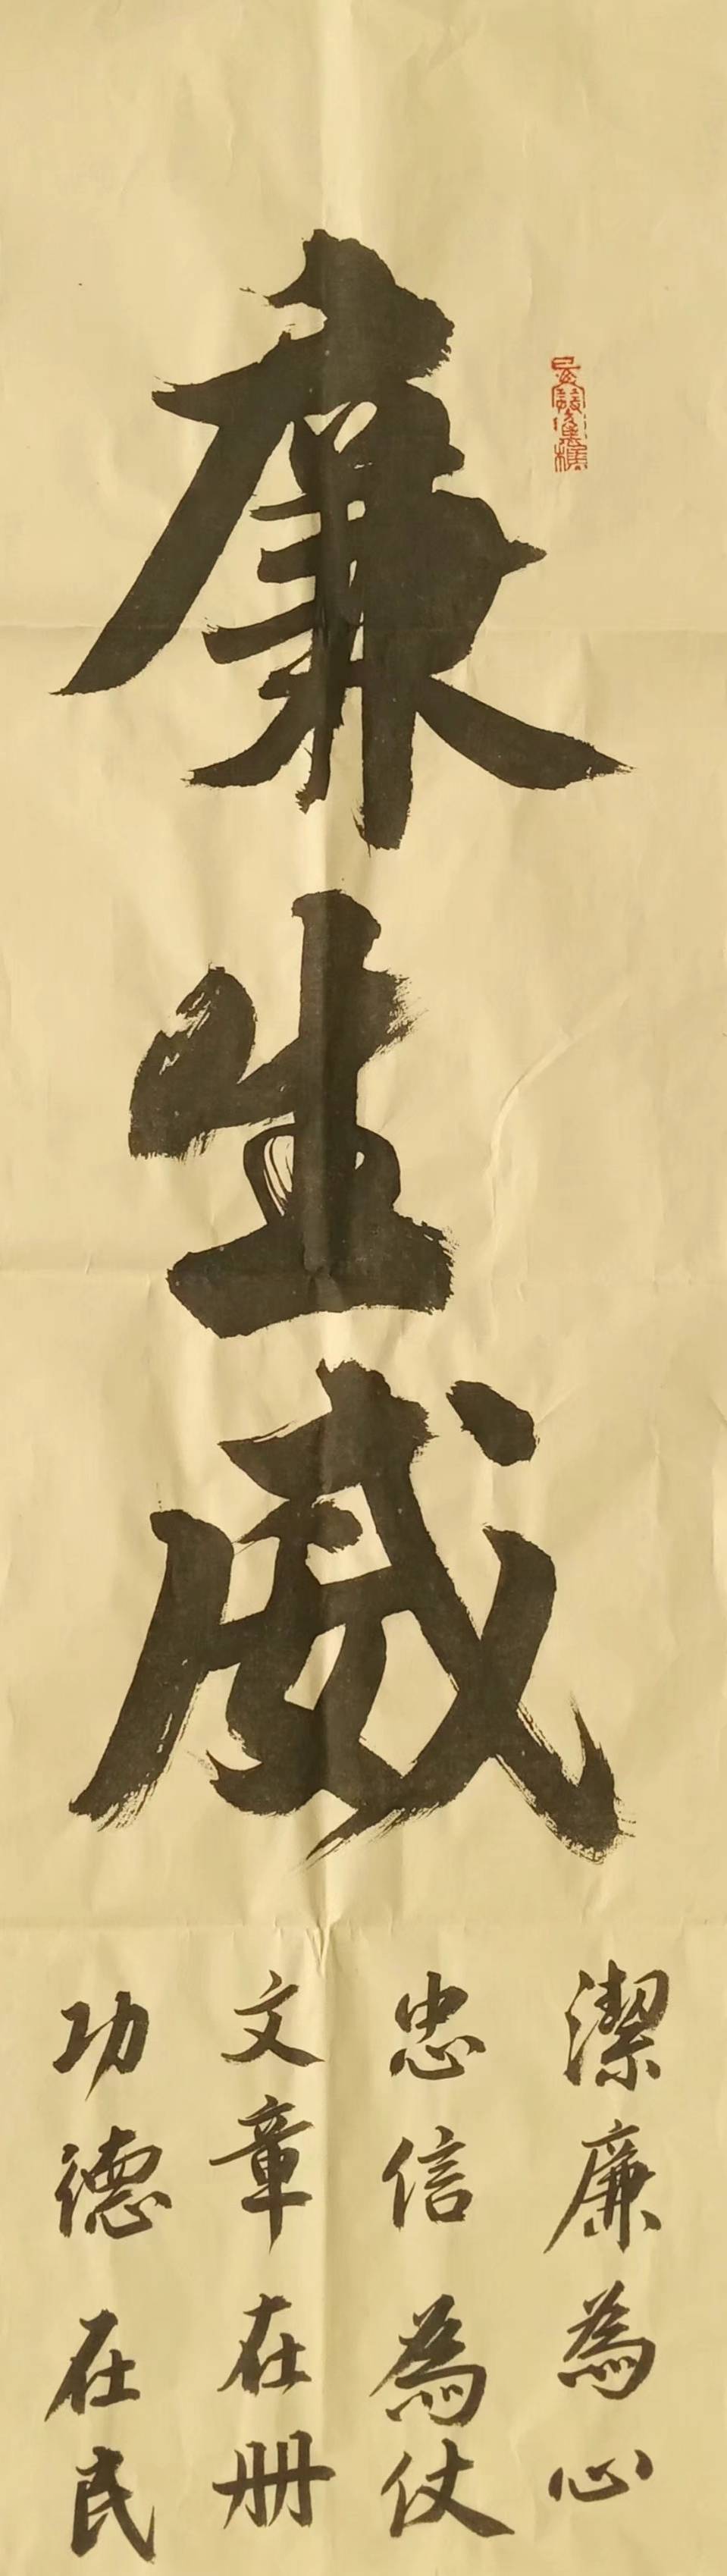 廉生威
潔廉為心
忠信為仗
文章在册
功德在民